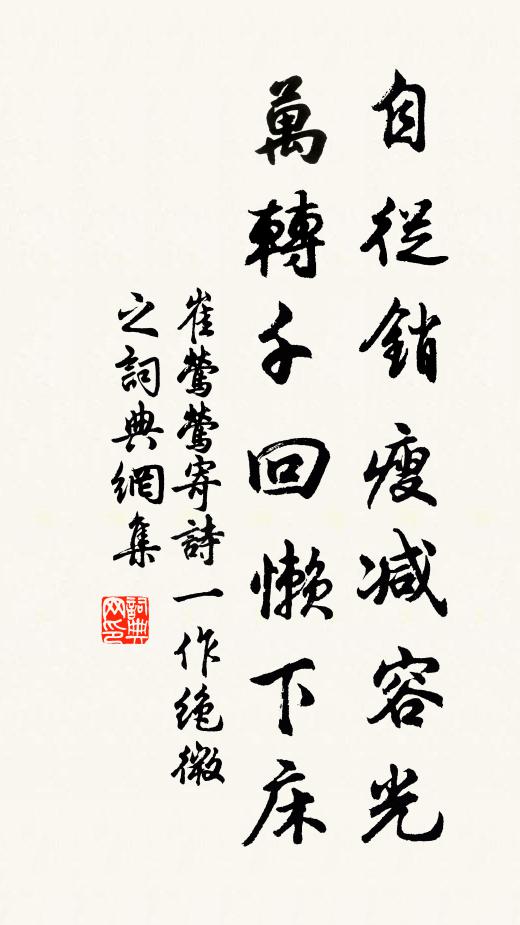 自從銷瘦减容光
萬轉千回懶下床
崔鶯鶯寄詩一作絶微
之詞典網集
詞典網印